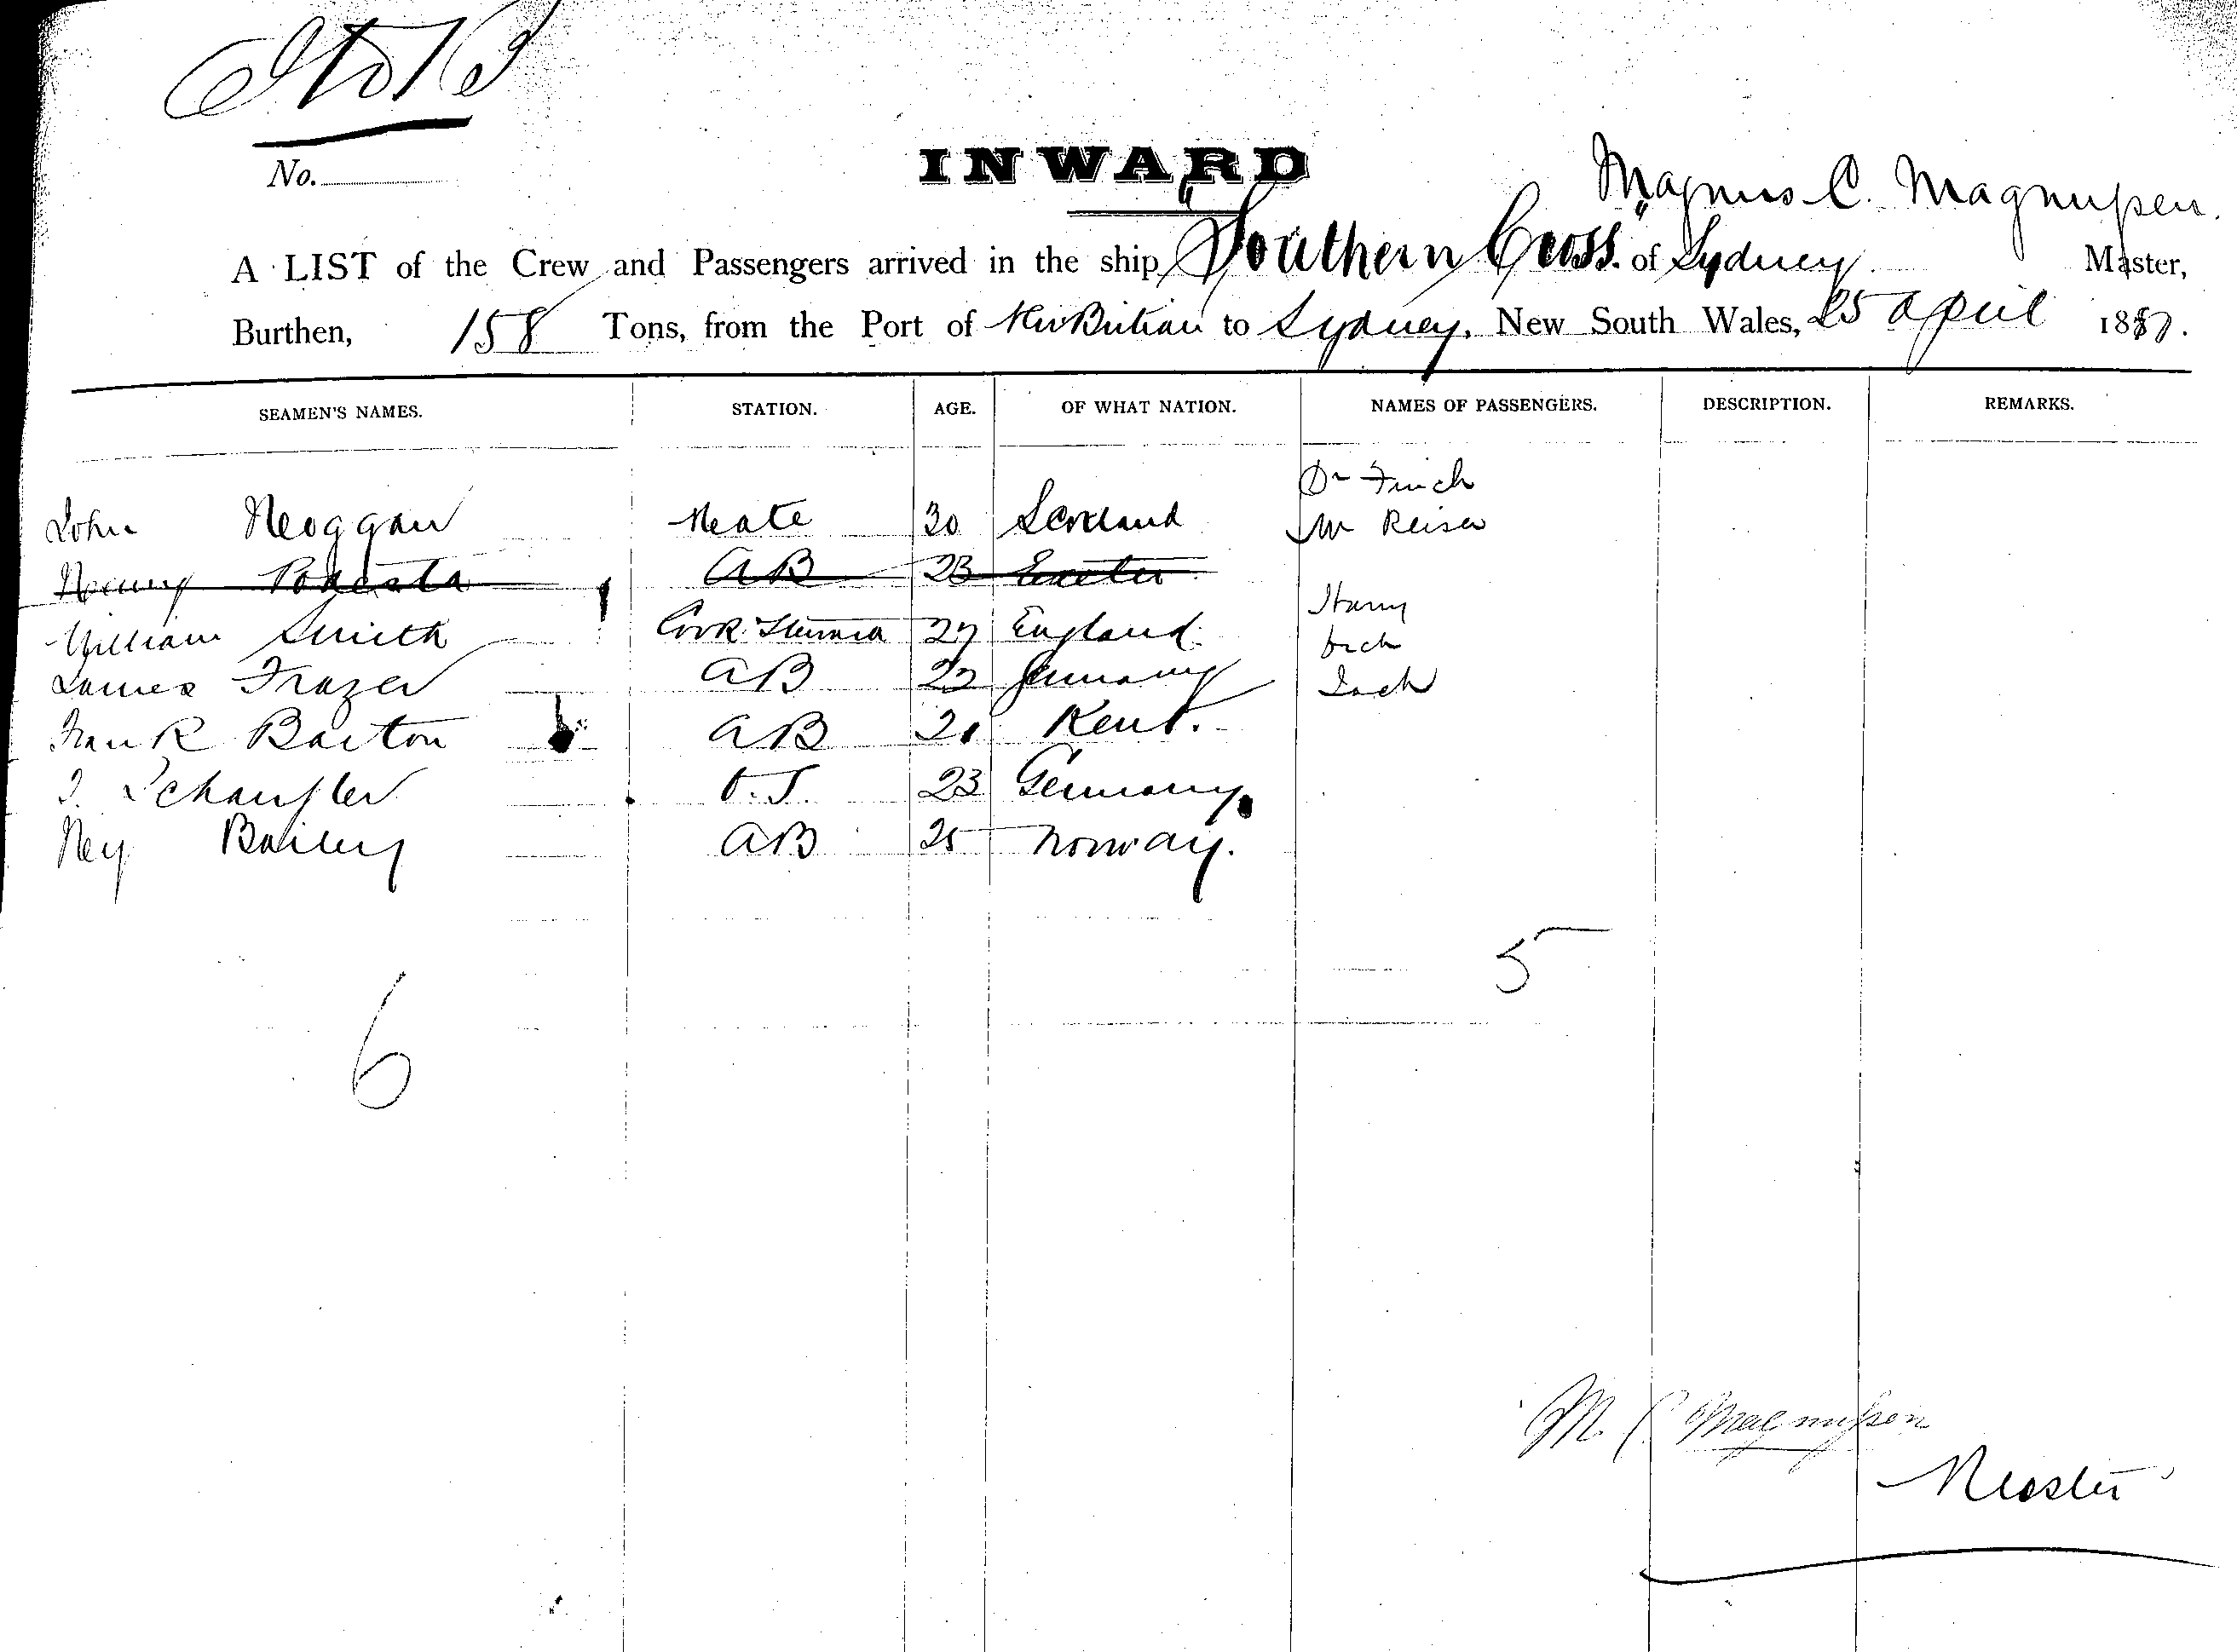 No.
INWARD
Magnus C. Magnussen.
A LIST of the Crew and Passengers arrived in the ship "Southern Cross" of Sydney Master,
Burthen, 158 Tons, from the Port of New Britain to Sydney, New South Wales, 25 April 1887.
SEAMEN'S NAMES. STATION. AGE. OF WHAT NATION. NAMES OF PASSENGERS. DESCRIPTION. REMARKS.
Dr Finch
John Meate 30 Scotland Mr Reiser
AB 23 Exeter
Harry
William Smith Cook 27 England
James Frazer AB Germany Jack
Frank Barton AB 21 Kent.
O.S. 23 Germany
Bailey AB 25 Norway.
5
6
M. C. Magnussen
Master